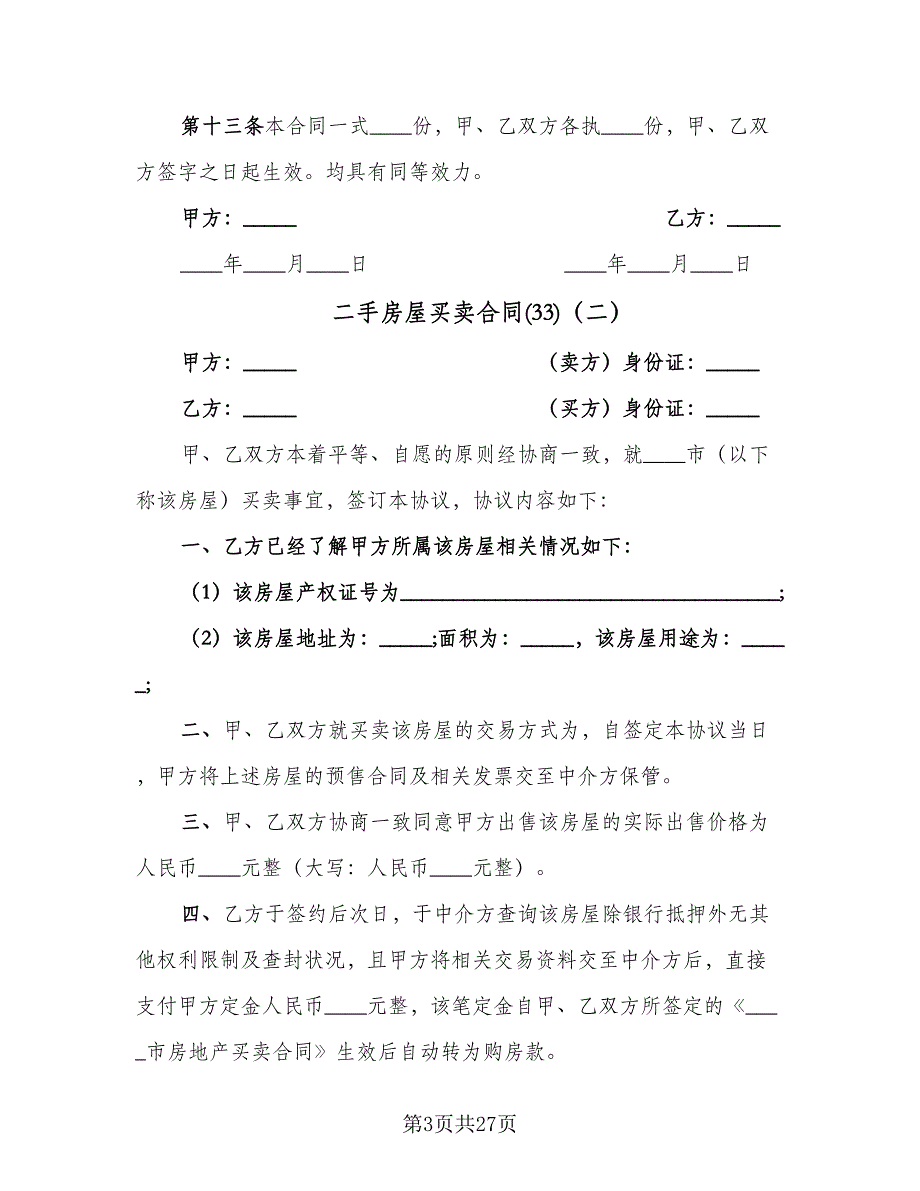 第十三条本合同一式____份，甲、乙双方各执____份，甲、乙双
方签字之日起生效。均具有同等效力。
甲方：_____ 乙方：_____
____年____月____日 ____年____月____日
二手房屋买卖合同(33)（二）
甲方：_____ （卖方）身份证：_____
乙方：_____ （买方）身份证：_____
甲、乙双方本着平等、自愿的原则经协商一致，就____市（以下
称该房屋）买卖事宜，签订本协议，协议内容如下：
一、乙方已经了解甲方所属该房屋相关情况如下：
（1）该房屋产权证号为____________________________________;
（2）该房屋地址为：_____;面积为：_____，该房屋用途为：____
_;
二、甲、乙双方就买卖该房屋的交易方式为，自签定本协议当日
，甲方将上述房屋的预售合同及相关发票交至中介方保管。
三、甲、乙双方协商一致同意甲方出售该房屋的实际出售价格为
人民币____元整（大写：人民币____元整）。
四、乙方于签约后次日，于中介方查询该房屋除银行抵押外无其
他权利限制及查封状况，且甲方将相关交易资料交至中介方后，直接
支付甲方定金人民币____元整，该笔定金自甲、乙双方所签定的《___
_市房地产买卖合同》生效后自动转为购房款。
第3页共27页